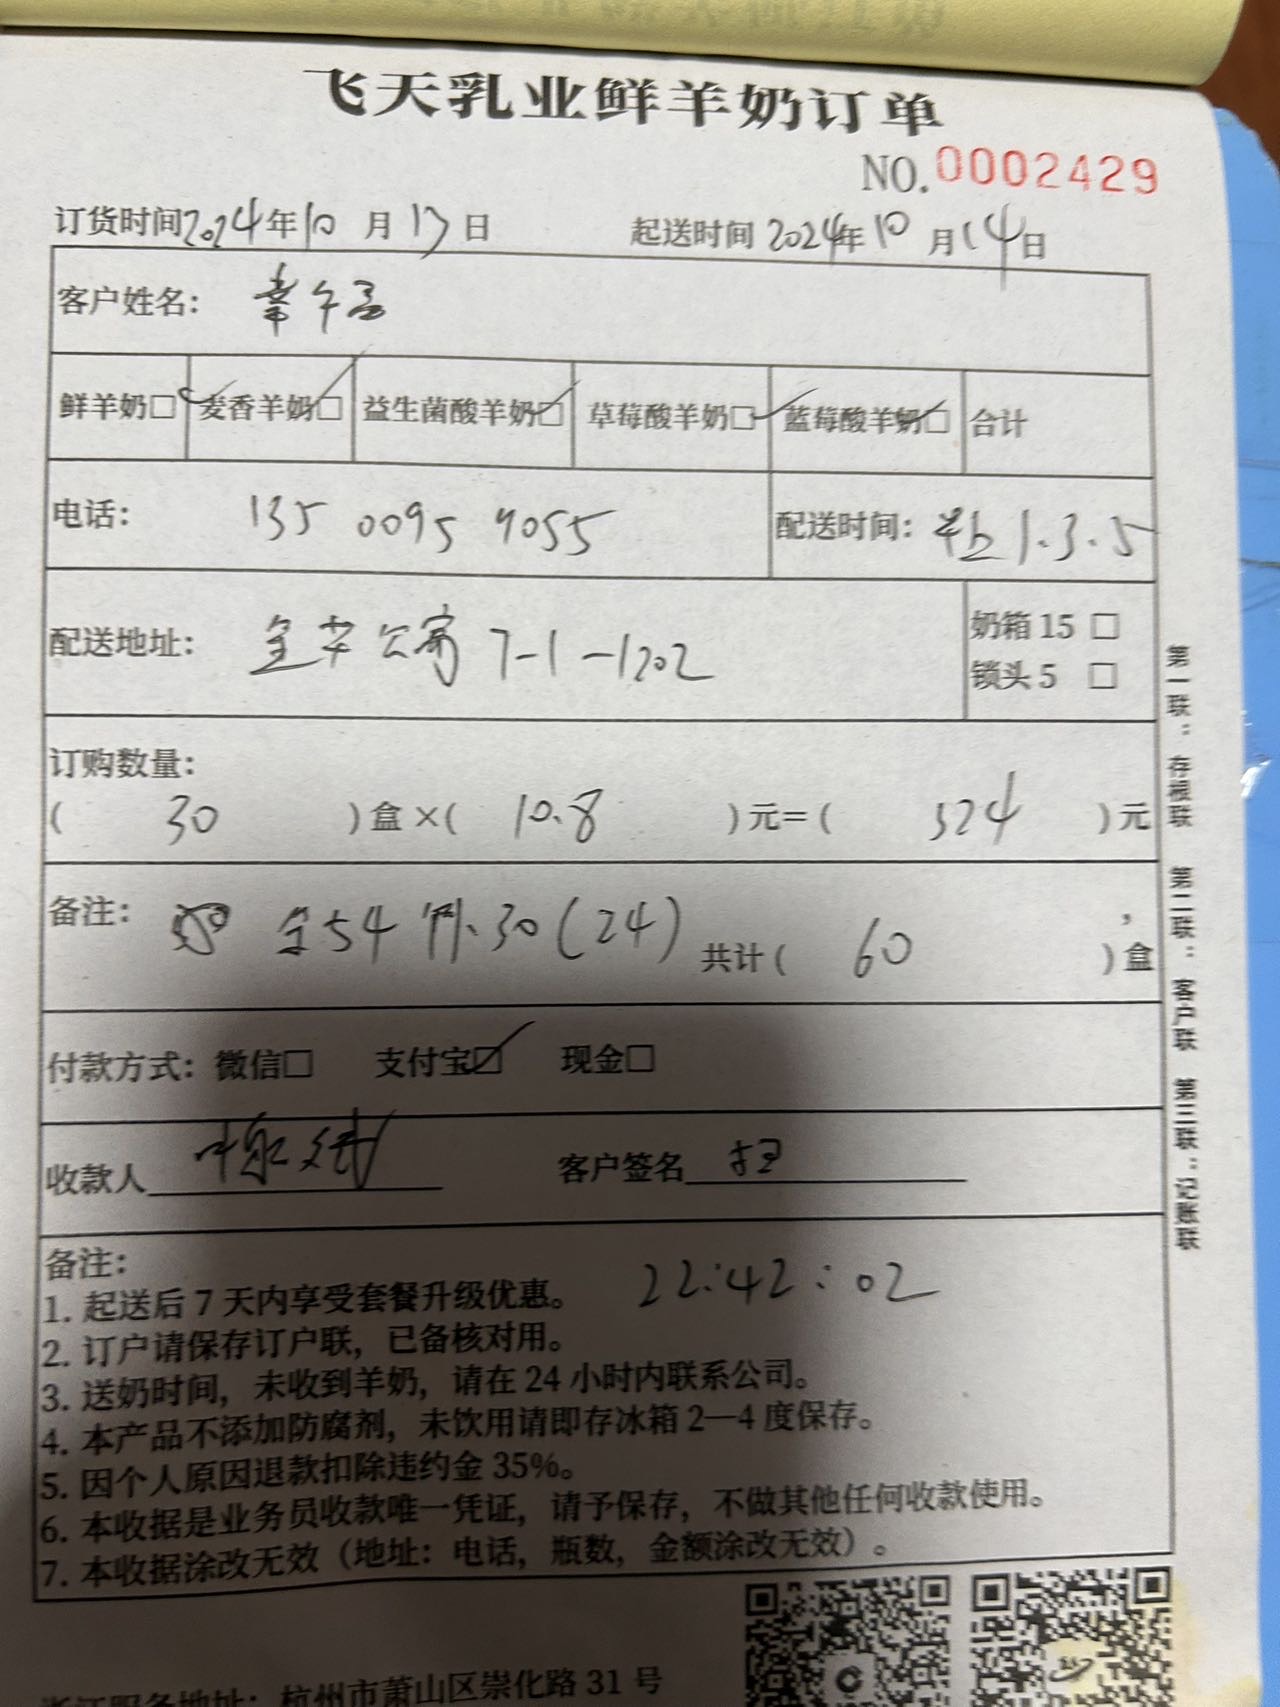 飞天乳业鲜羊奶订单
NO.0002429
订货时间2024年10月13日 起送时间 2024年10月14日
客户姓名：
鲜羊奶□ 麦香羊奶□ 益生菌酸羊奶□ 草莓酸羊奶□ 蓝莓酸羊奶□ 合计
电话： 135 0095 9055 配送时间： 1.3.5
配送地址： 公寓 7-1-1202 奶箱 15 □
锁头 5 □
订购数量：
( 30 )盒×( 10.8 )元=( 324 )元
备注： 54 30(24) 共计( 60 )盒
付款方式：微信□ 支付宝☑ 现金□
收款人 客户签名
备注： 22:42:02
1. 起送后 7 天内享受套餐升级优惠。
2. 订户请保存订户联，已备核对用。
3. 送奶时间，未收到羊奶，请在 24 小时内联系公司。
4. 本产品不添加防腐剂，未饮用请即存冰箱 2—4 度保存。
5. 因个人原因退款扣除违约金 35%。
6. 本收据是业务员收款唯一凭证，请予保存，不做其他任何收款使用。
7. 本收据涂改无效（地址：电话，瓶数，金额涂改无效）。
杭州市萧山区崇化路 31 号
第一联：存根联 第二联：客户联 第三联：记账联